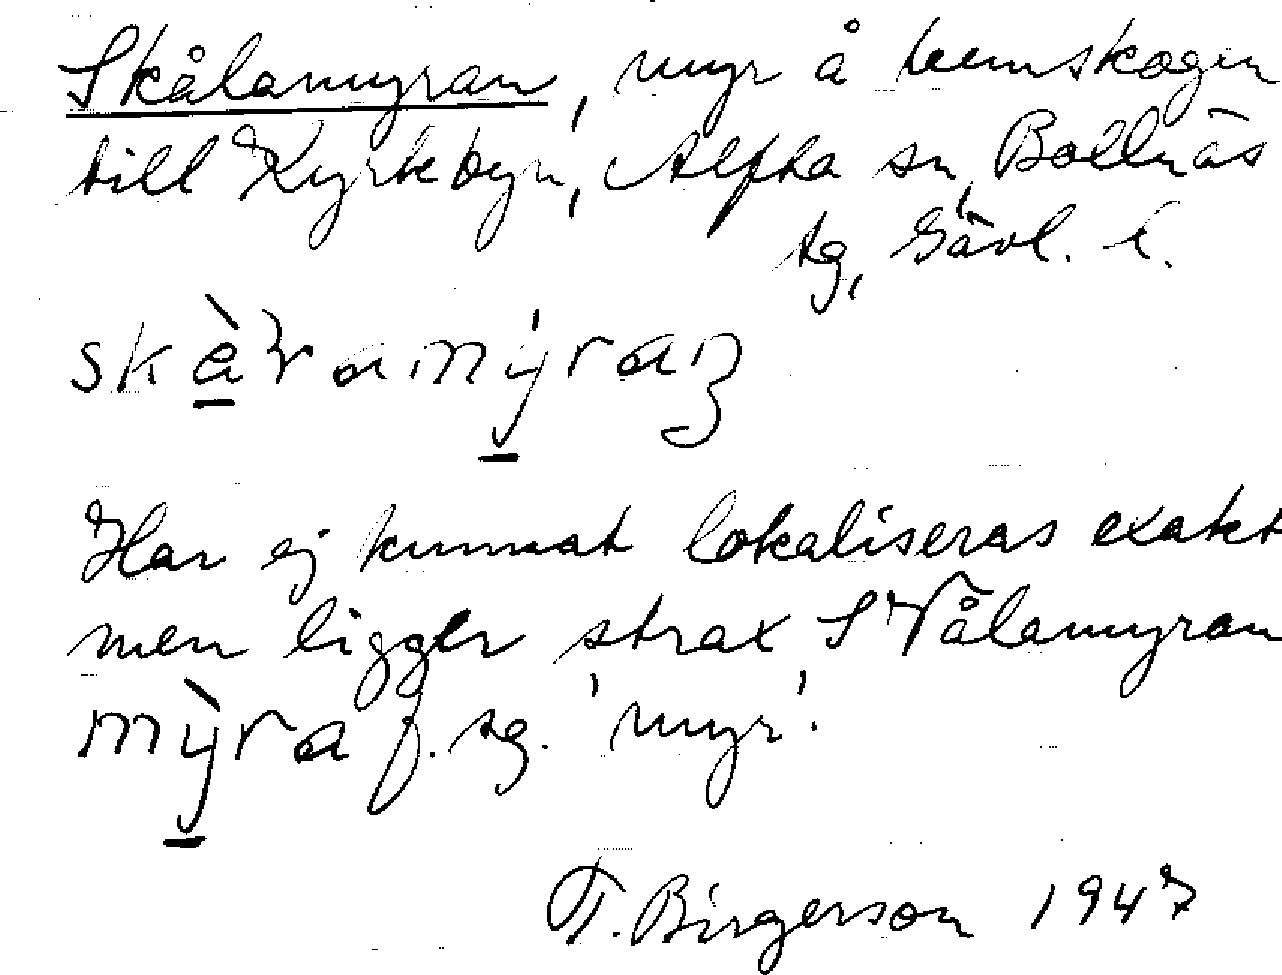 Skålamyran, myr å hemskogen
till Kyrkbyn, Alfta sn, Bollnäs
tg, Gävl. l.
Har ej kunnat lokaliseras exakt
men ligger strax S Vålamyran
mỳra f. sg. 'myr'.
T. Birgerson 1947